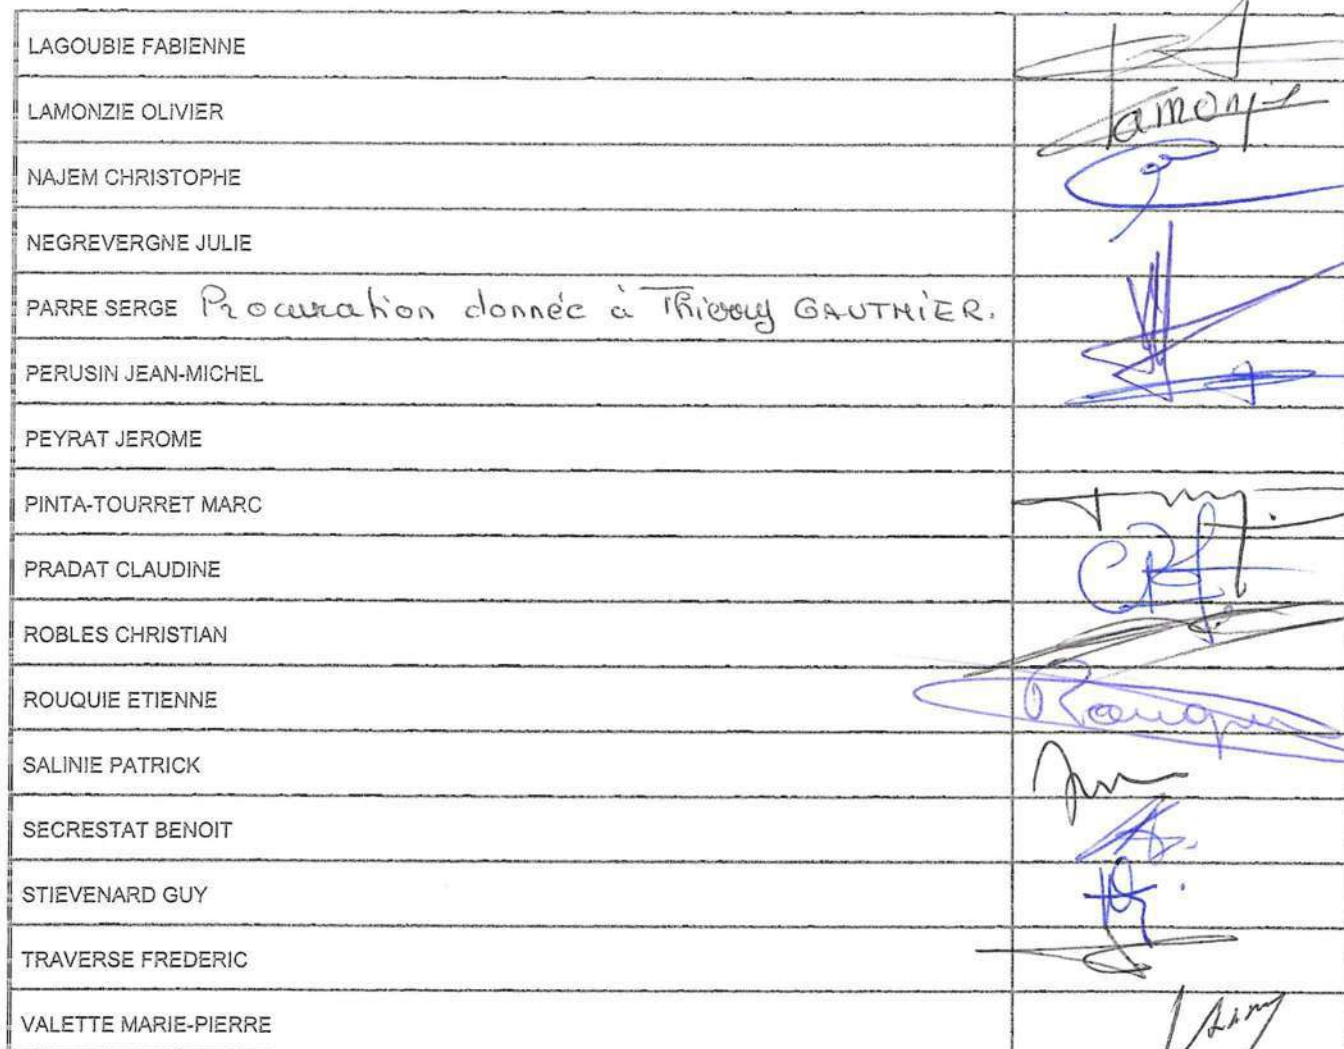 LAGOUBIE FABIENNE
LAMONZIE OLIVIER
NAJEM CHRISTOPHE
NEGREVERGNE JULIE
PARRE SERGE Procuration donnée à Thierry GAUTHIER.
PERUSIN JEAN-MICHEL
PEYRAT JEROME
PINTA-TOURRET MARC
PRADAT CLAUDINE
ROBLES CHRISTIAN
ROUQUIE ETIENNE
SALINIE PATRICK
SECRESTAT BENOIT
STIEVENARD GUY
TRAVERSE FREDERIC
VALETTE MARIE-PIERRE